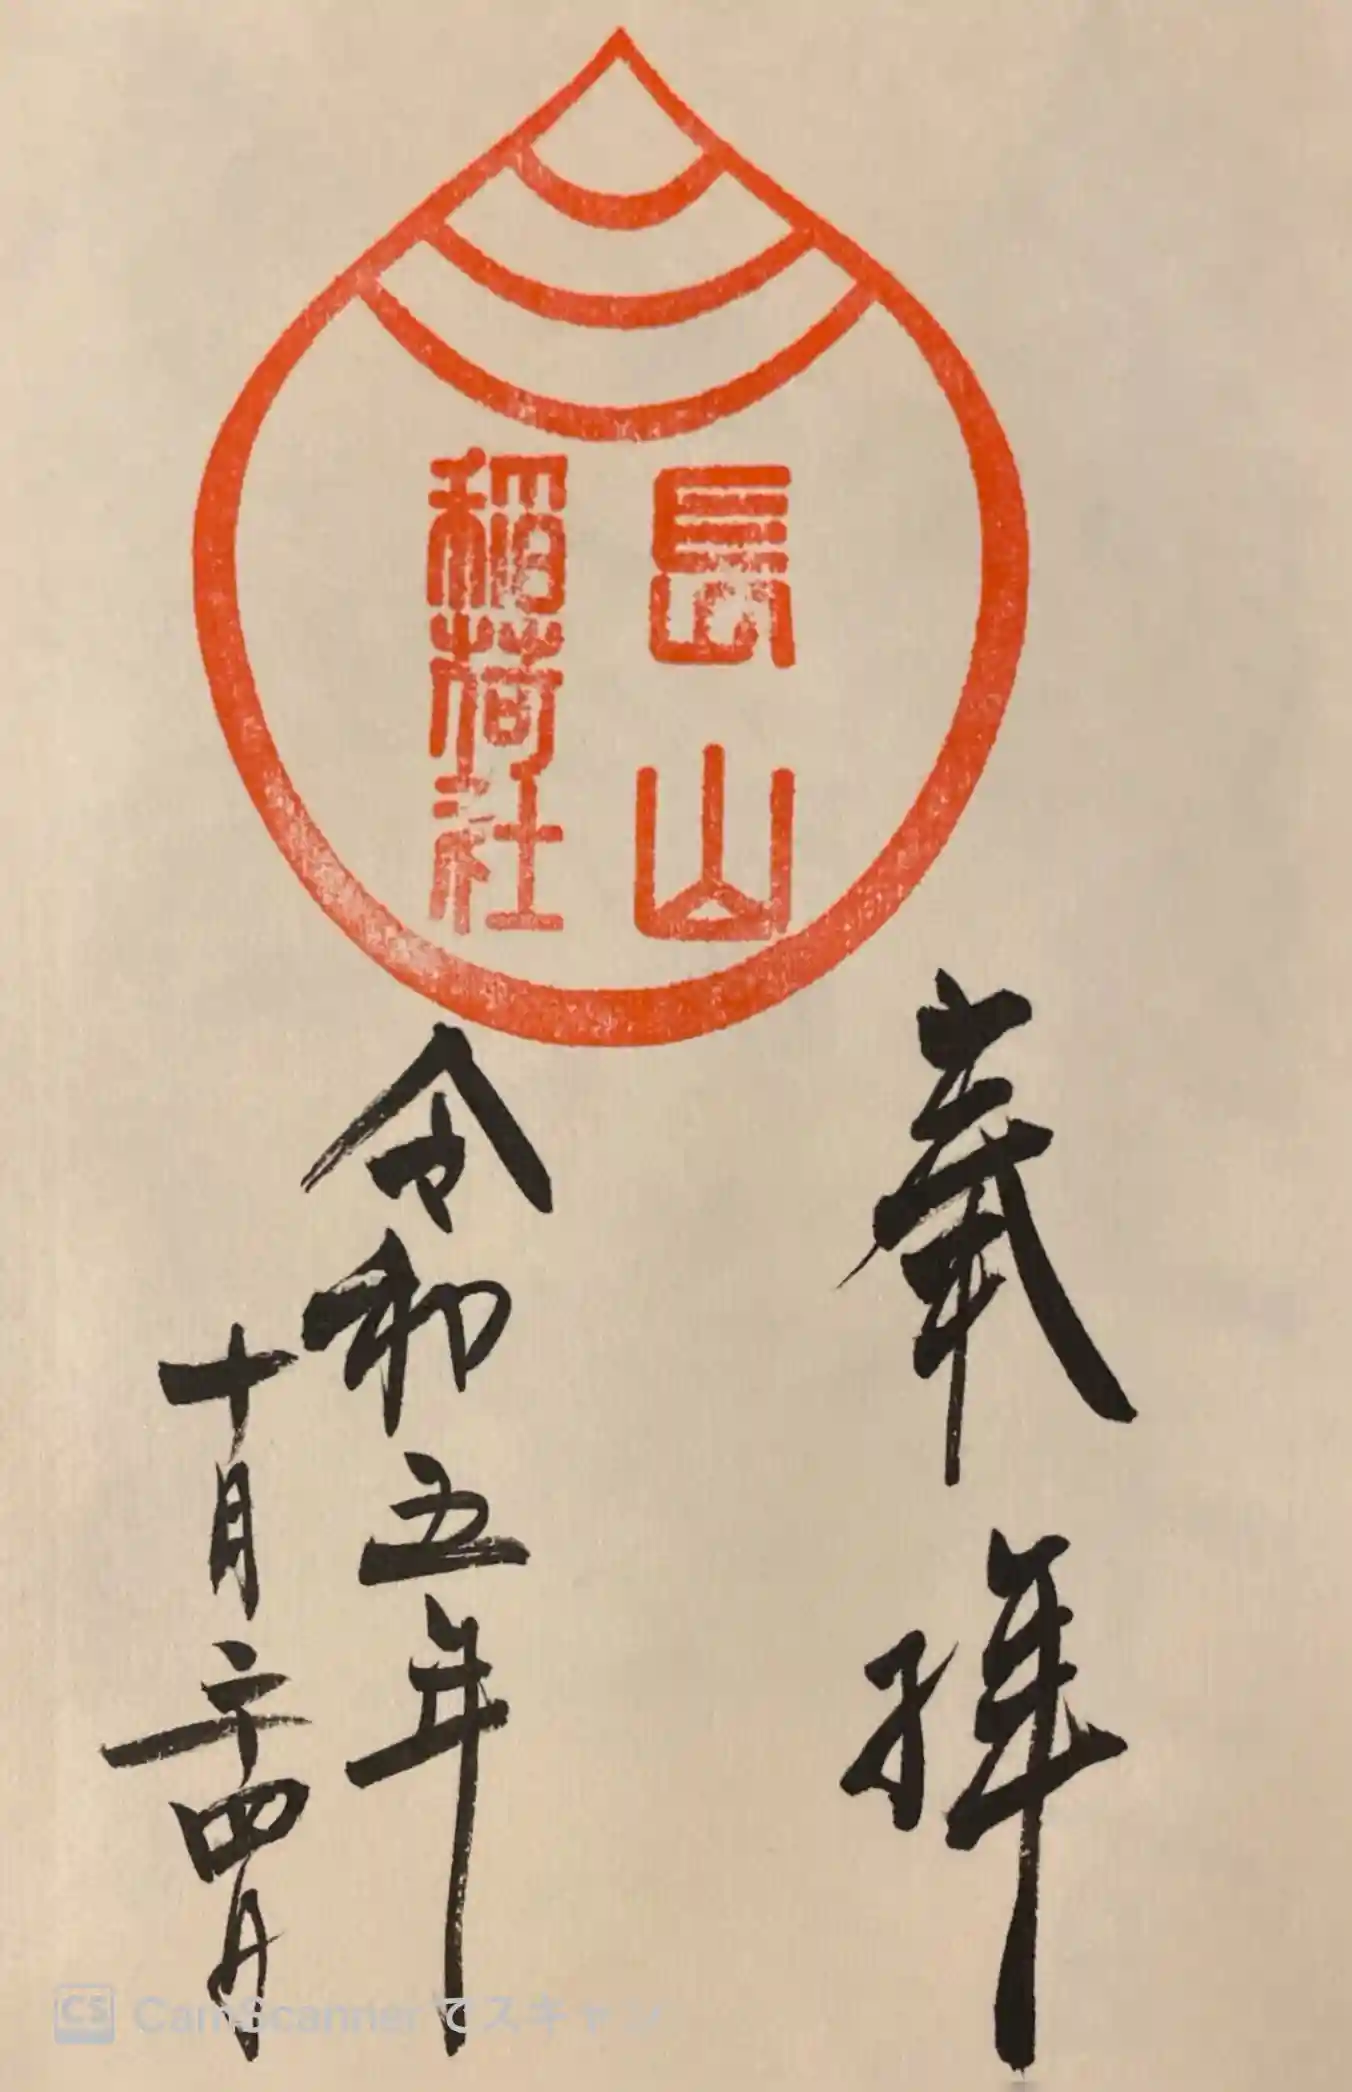 長山
稲荷社
奉拝
令和五年
十月二十四日
CS CamScanner でスキャン